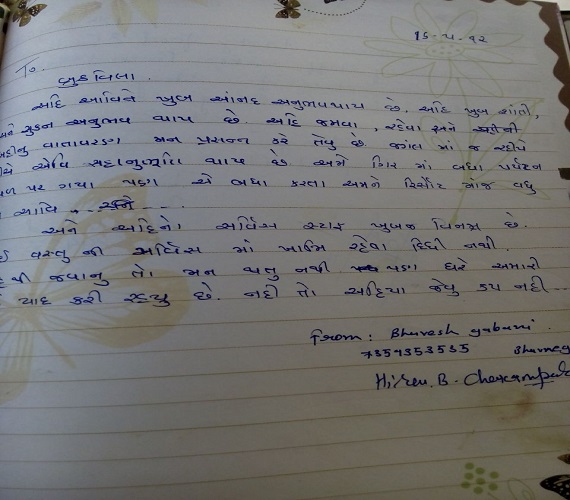 ૧૬-૫-૧૨
To.
વુડવિલા.
અહિ આવિને ખુબ આંનદ અનુભવપાય છે. અહિ ખુબ શાંતી,
સુકન અનુભવ થાય છે. અહિ જમવા, રહેવા અને
વાતાવરણ મન પ્રસન્ન કરે તેવુ છે જંગલ માં જ રહીયે
એવિ સહાનુભુતિ થાય છે અમે ગિર માં બધા પર્યટન
પર ગયા પણ એ બધા કરતા અમને રિસોર્ટ માજ વધુ
આવિ
અને અહિનો સર્વિસ સ્ટાફ ખુબજ વિનમ્ર છે.
વસ્તુ ની સર્વિસ માં ખામિ રહેવા દિધી નથી.
જવાનુ તો મન થતુ નથી પણ ઘરે અમારી
યાદ કરી રહ્યુ છે. નહી તો અહિયા જેવુ કય નહી
From: Bhavesh gabani.
7359353535
Hiren. B.